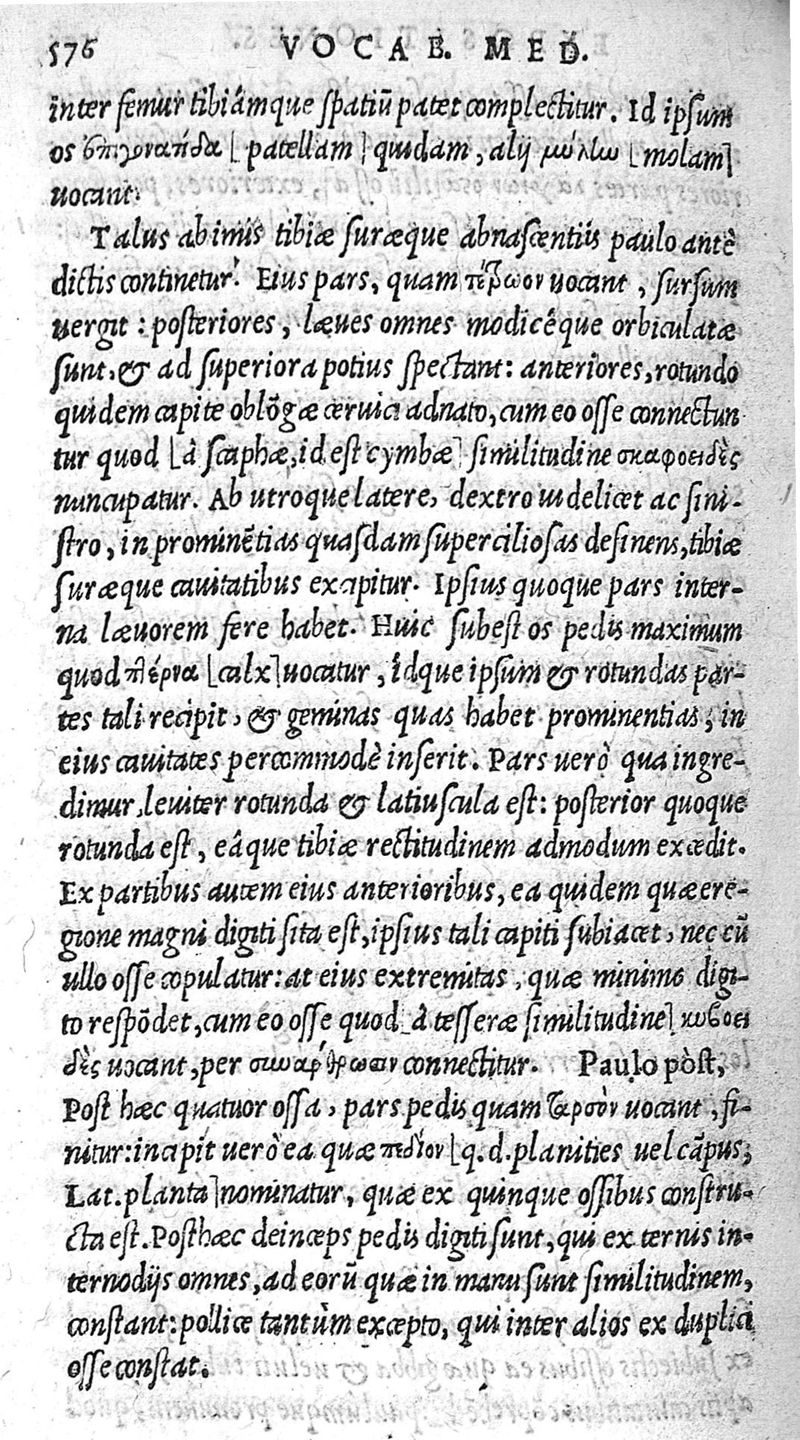 576 VOCAB. MED.
inter femur tibiámque spatiū patet complectitur. Id ipsum
os ἐπιγονατίδα [patellam] quidam, alij μύλην [molam]
uocant.
Talus ab imis tibiæ suræque abnascentiis paulo antè
dictis continetur. Eius pars, quam τέτρωρον uocant, sursum
uergit: posteriores, læues omnes modicéque orbiculatæ
sunt, & ad superiora potius spectant: anteriores, rotundo
quidem capite oblōgæ ceruici adnato, cum eo osse connectun
tur quod [à scaphæ, id est cymbæ] similitudine σκαφοειδὲς
nuncupatur. Ab utroque latere, dextro uidelicet ac sini-
stro, in prominētias quasdam superciliosas desinens, tibiæ
suræque cauitatibus excipitur. Ipsius quoque pars inter-
na læuorem fere habet. Huic subest os pedis maximum
quod πτέρνα [calx] uocatur, idque ipsum & rotundas par-
tes tali recipit, & geminas quas habet prominentias, in
eius cauitates percommodè inserit. Pars uerò qua ingre-
dimur, leuiter rotunda & latiuscula est: posterior quoque
rotunda est, eáque tibiæ rectitudinem admodum excedit.
Ex partibus autem eius anterioribus, ea quidem quæ e re-
gione magni digiti sita est, ipsius tali capiti subiacet, nec cū
ullo osse copulatur: at eius extremitas, quæ minimo digi-
to respōdet, cum eo osse quod [à tesseræ similitudine] κυβοει
δὲς uocant, per συναρθρωσιν connectitur. Paulo pòst,
Post hæc quatuor ossa, pars pedis quam ταρσὸν uocant, fi-
nitur: incipit uerò ea quæ πεδίον [q.d. planities uel cāpus;
Lat. planta] nominatur, quæ ex quinque ossibus constru-
cta est. Post hæc deinceps pedis digiti sunt, qui ex ternis in-
ternodijs omnes, ad eorū quæ in manu sunt similitudinem,
constant: pollice tantùm excepto, qui inter alios ex duplici
osse constat.